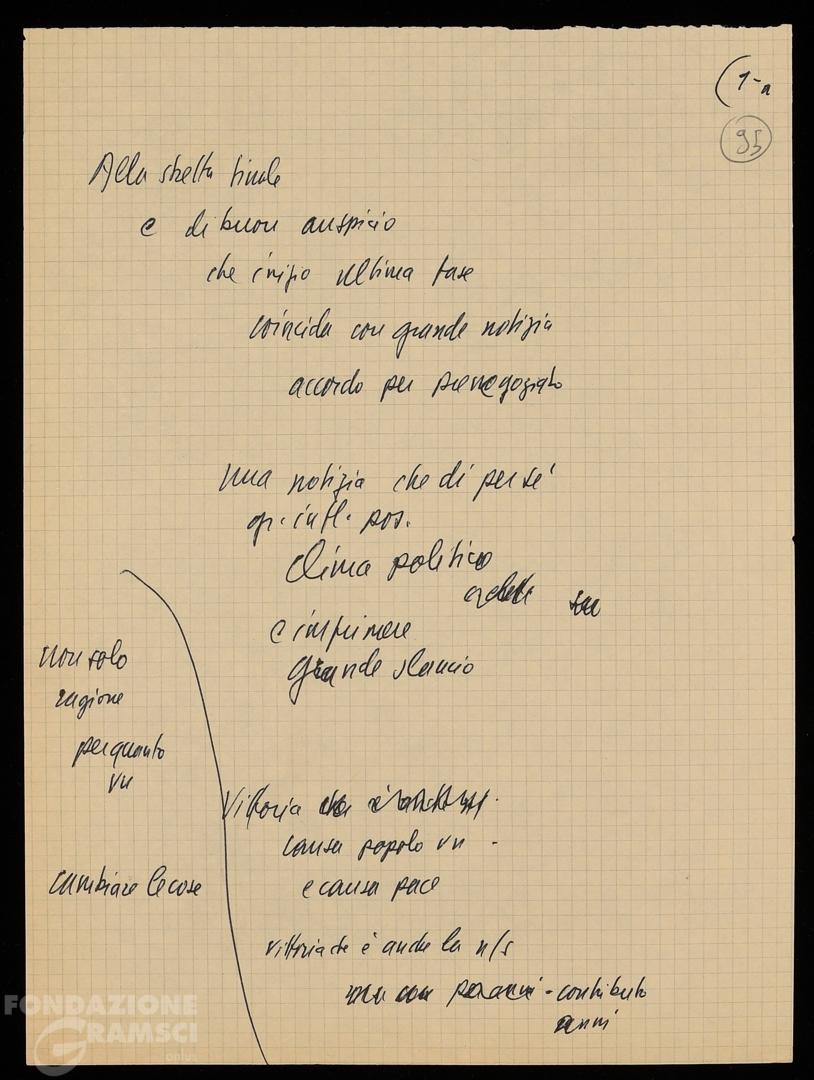 (1-a
95
Alla stretta finale
e di buon auspicio
che inizio ultima fase
coincida con grande notizia
accordo per
una notizia che di per sé
op. intl. pos.
clima politico
e imprimere
grande slancio
non solo
ragione
per quanto
vn
cambiare le cose
Vittoria che è
causa popolo vn -
e causa pace
vittoria che è anche la n/s
ma con - contributo
anni
FONDAZIONE
GRAMSCI
onlus